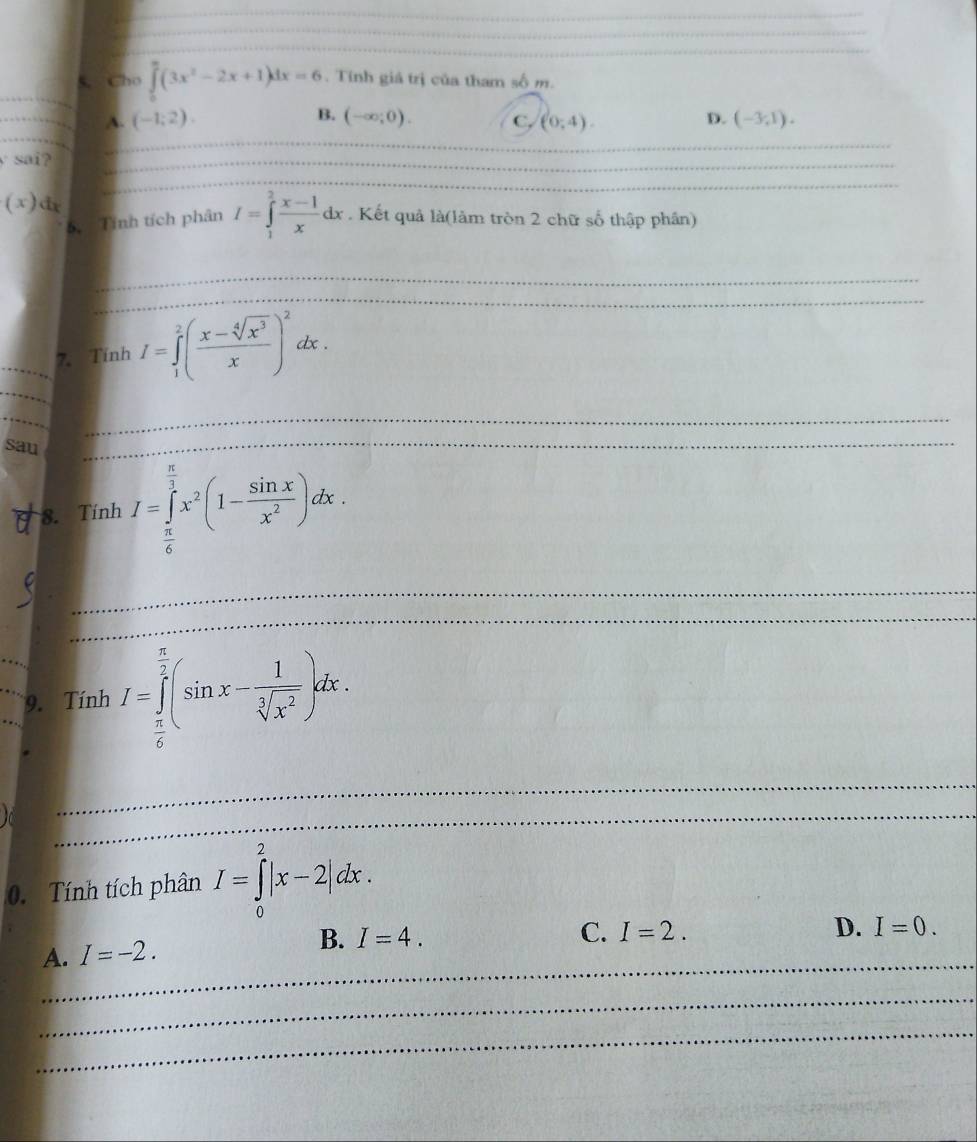 5. Cho \int_{0}^{m}(3x^2-2x+1)dx=6. Tính giá trị của tham số m.
A. (-1;2). B. (-∞;0). C. (0;4). D. (-3;1).
sai?
(x)dx
6. Tính tích phân I=\int_{1}^{2}\frac{x-1}{x}dx. Kết quả là(làm tròn 2 chữ số thập phân)
7. Tính I=\int_{1}^{2}\left(\frac{x-\sqrt[4]{x^3}}{x}\right)^2 dx.
sau
8. Tính I=\int_{\frac{\pi}{6}}^{\frac{\pi}{3}}x^2\left(1-\frac{\sin x}{x^2}\right)dx.
9. Tính I=\int_{\frac{\pi}{6}}^{\frac{\pi}{2}}\left(\sin x-\frac{1}{\sqrt[3]{x^2}}\right)dx.
0. Tính tích phân I=\int_{0}^{2}|x-2|dx.
A. I=-2. B. I=4. C. I=2. D. I=0.